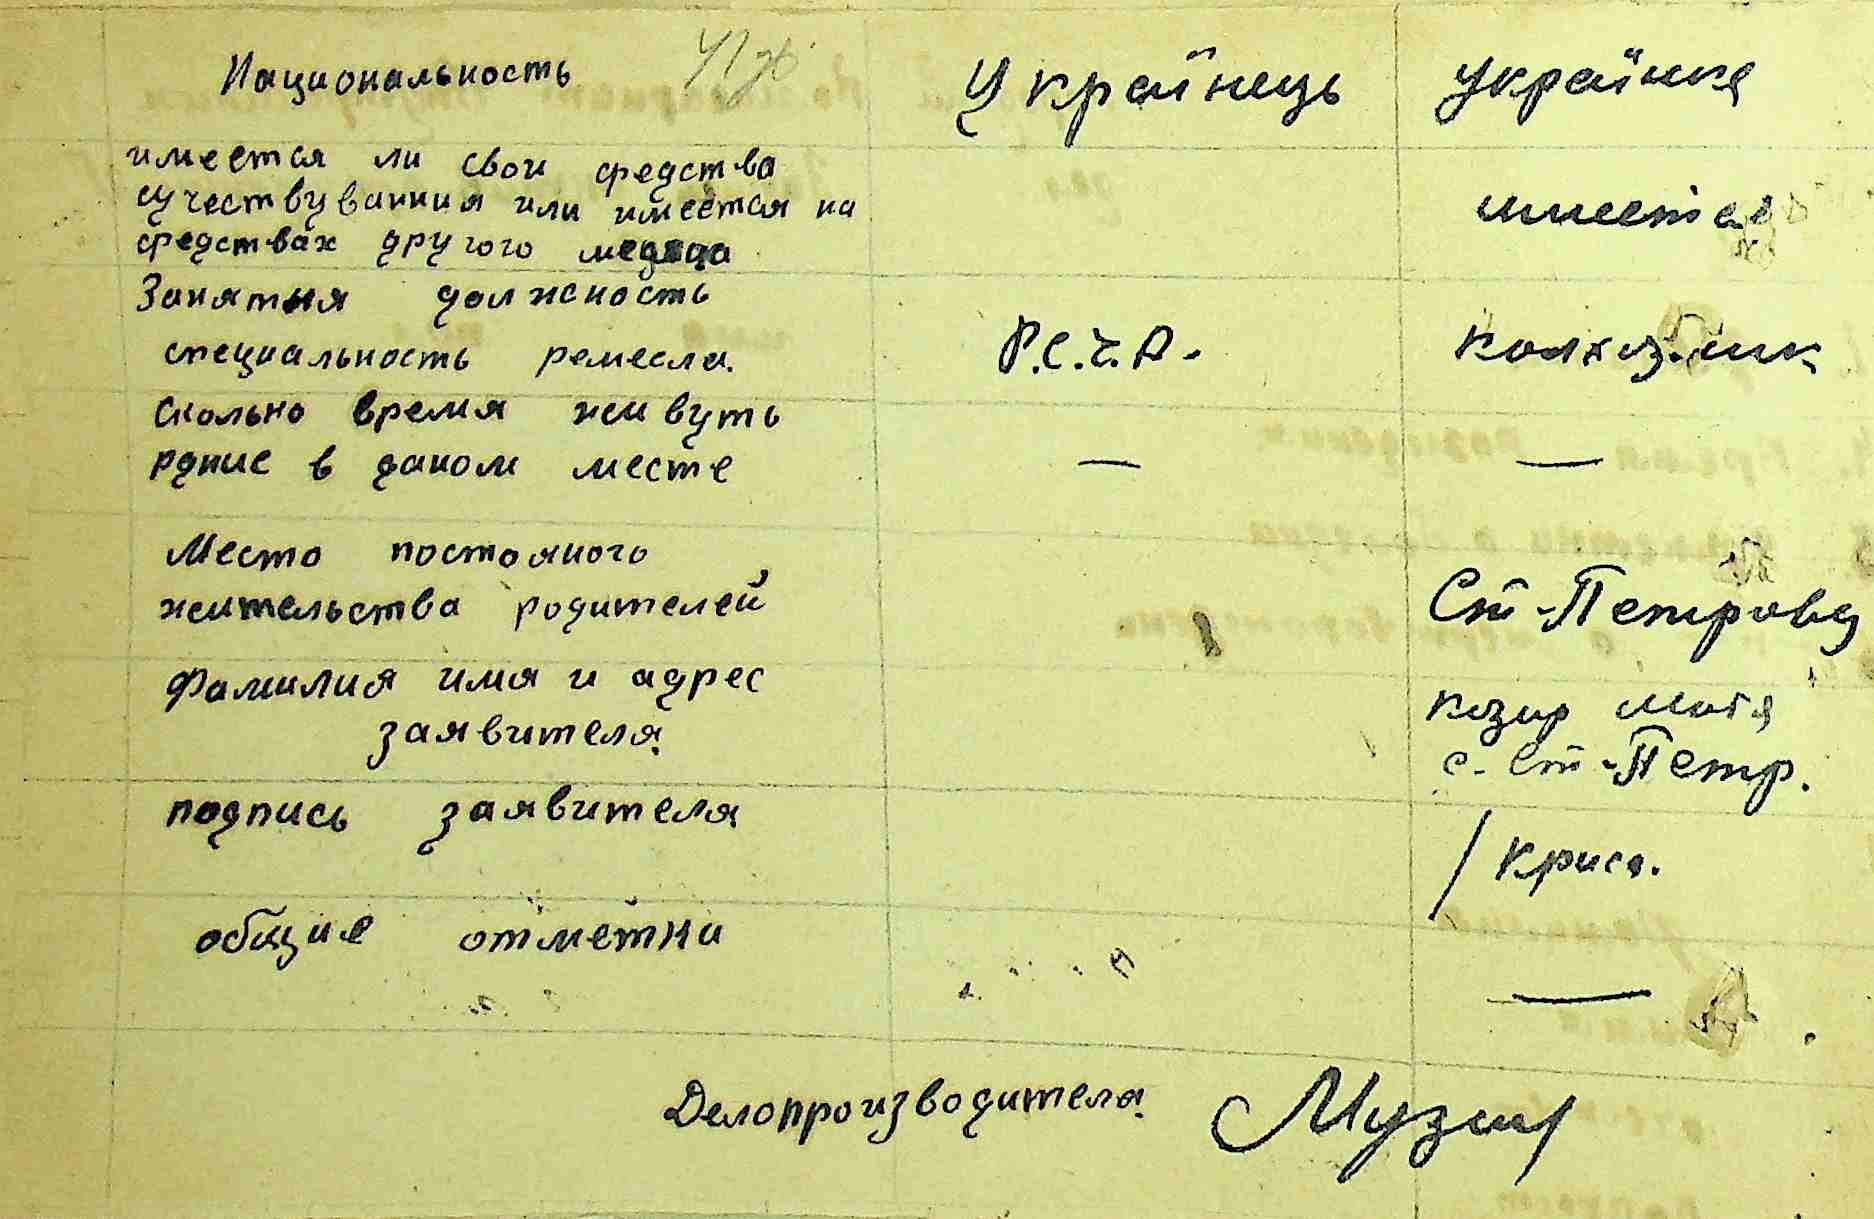 Национальность Українець Українка
имеется ли свои средства
сучествувания или имеется на имеется
средствах другого
Занятия должность
специальность ремесла. Р.С.Ч.А. колхозник
Сколько время живуть
рдние в даном месте — —
Место постояного
жительства родителей Ст-Петровц
Фамилия имя и адрес козир мотя
заявителя. с. Ст-Петр.
подпись заявителя
/ Крисо.
общие отметки —
Делопроизводитела. Музир